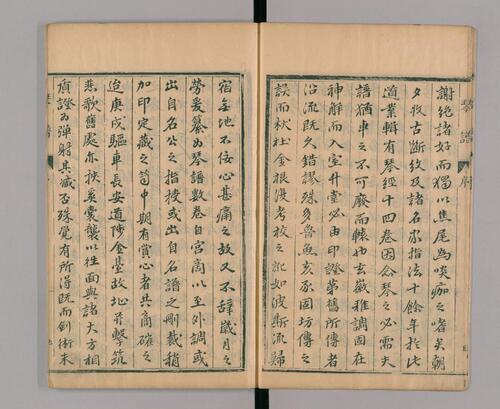 謝絕諸好而獨以焦尾為啖痂之嗜矣朝
夕牧古斷紋及諸名家指法十餘年於此
道業輯有琴經十四卷因念琴之必需夫
譜猶車之不可廢而轅也玄徽稚調固在
神解而入室升堂必由印證第舊所傳者
沿流既久錯謬殊多魯魚亥豕固坊傳之
誤而杕杜金根漫考校之訛如波斯流歸
宿無地不佞心甚痛之故又不辭歲月之
勞爰纂為琴譜數卷自宮商以至外調或
出自名公之指授或出自名譜之刪裁稍
加印定藏之笥中期有賞心者共商確之
迨庚戌驅車長安道陟金臺故地弔擊筑
悲歌舊處亦挾奚囊襲以往面與諸大方相
質證為彈射其臧否殊覺有所得既而劍術未
琴譜 序